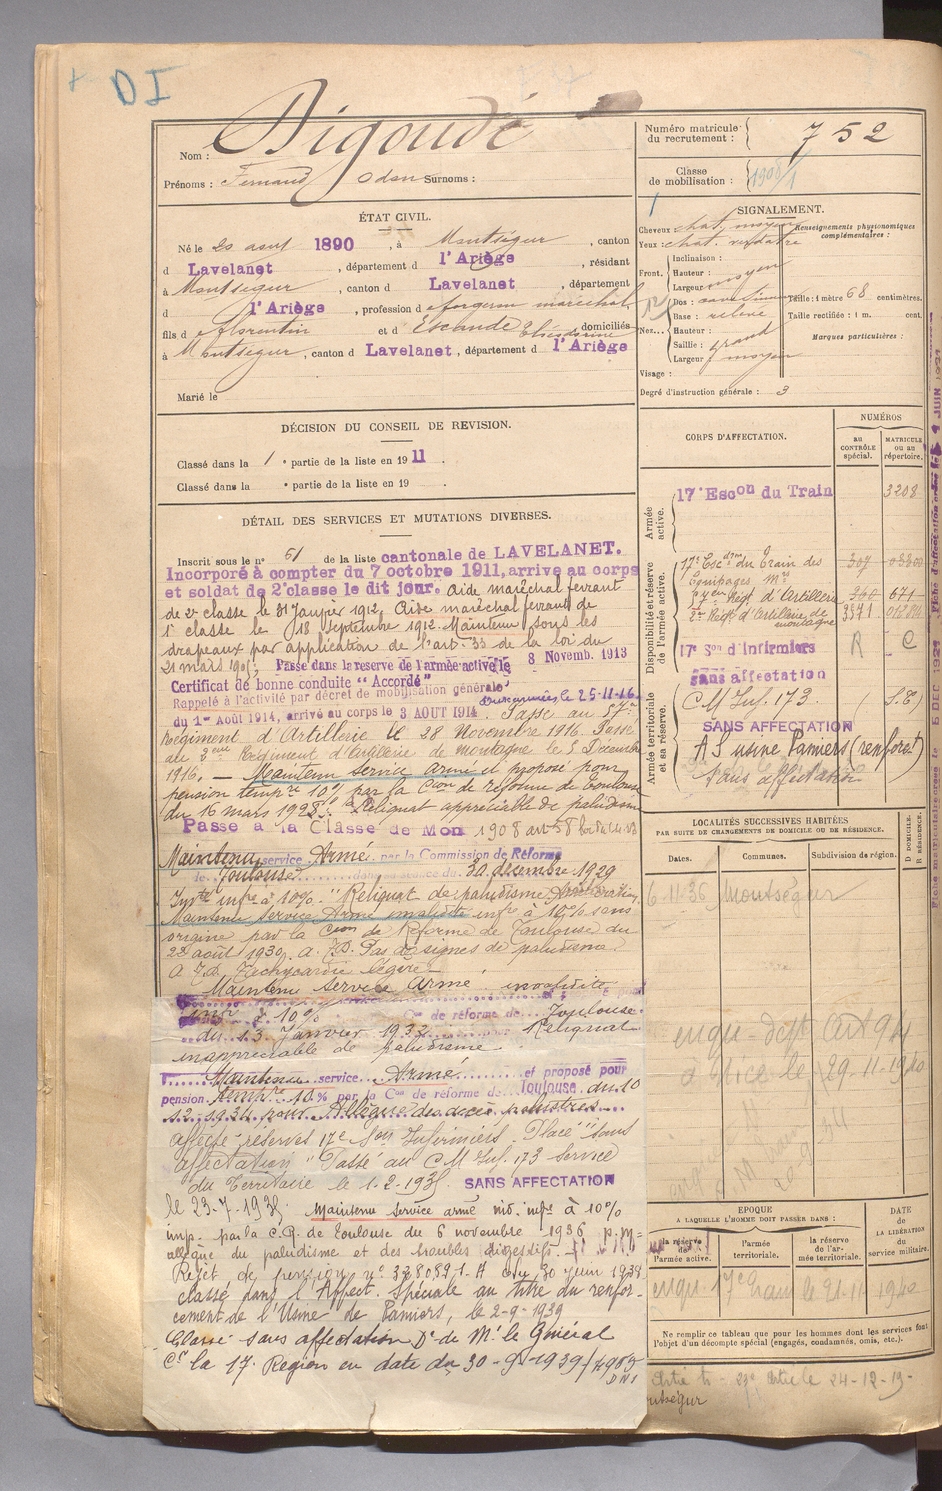 DI
Nom : Digoudé
Prénoms : Fernand Odon Surnoms :
ÉTAT CIVIL.
Né le 20 aout 1890, à Montségur, canton
d Lavelanet, département d l'Ariège, résidant
à Montségur, canton d Lavelanet, département
d l'Ariège, profession d forgeron maréchal
fils d Florentin et d' Escande Théodorine domiciliés
à Montségur, canton d Lavelanet, département d l'Ariège
Marié le
DÉCISION DU CONSEIL DE REVISION.
Classé dans la 1e partie de la liste en 1911.
Classé dans la e partie de la liste en 19
DÉTAIL DES SERVICES ET MUTATIONS DIVERSES.
Inscrit sous le n° 61 de la liste cantonale de LAVELANET.
Incorporé à compter du 7 octobre 1911, arrive au corps
et soldat de 2e classe le dit jour. Aide maréchal ferrant
de 2e classe le 31 Janvier 1912. Aide maréchal ferrant de
1e classe le 18 Septembre 1912. Maintenu sous les
drapeaux par application de l'art. 33 de la loi du
21 mars 1905. Passé dans la reserve de l'armée active le 8 Novemb. 1913
Certificat de bonne conduite "Accordé"
Rappelé à l'activité par décret de mobilisation générale
du 1er Août 1914, arrivé au corps le 3 AOUT 1914. Passé au 57me
Régiment d'Artillerie le 28 Novembre 1916. Passé
au 2eme Régiment d'Artillerie de montagne le 5 Décembre
1916. — Maintenu service armé et proposé pour
pension tempre 10% par la Cion de réforme de Toulouse
du 16 mars 1928. Reliquat appréciable de paludisme
Passé à la Classe de Mon 1908 art 58
Maintenu service Armé par la Commission de Réforme
de Toulouse dans sa séance du 30 décembre 1929
infre à 10%. "Reliquat de paludisme
Maintenu Service Armé invalidité infre à 10% sans
origine par la Cion de Réforme de Toulouse du
22 août 1930. a. J.D. Pas de signes de paludisme
A J.D. Tachycardie légère
Maintenu service armé invalidité
infre à 10% Con de réforme de Toulouse
du 13 Janvier 1932 Reliquat
inappréciable de paludisme.
Maintenu service Armé et proposé pour
pension tempre 10% par la Con de réforme de Toulouse du 10
12-1934 pour Allègue des accès palustres
Affecté réserves 17e Son Infirmiers. Placé "sans
affectation" Passé au C M Inf. 173 service
du Territoire le 1-2-1935. SANS AFFECTATION
le 23-7-1935. Maintenu service armé inv. infre à 10%
imp. par la C.R. de Toulouse du 6 novembre 1936 p.m.
allègue du paludisme et des troubles digestifs.
Rejet de pension n° 3280821. A du 30 juin 1938
classé dans l'Affect. Spéciale au titre du renfor-
cement de l'Usine de Pamiers, le 2-9-1939
Classé sans affectation Dn de Mr le Général
Ct la 17e Region en date du 30-9-1939
Numéro matricule du recrutement : 752
Classe de mobilisation : 1908/1
SIGNALEMENT.
Cheveux chat. moyen
Yeux : chat. verdâtre
Renseignements physionomiques complémentaires :
Front.
Inclinaison :
Hauteur : moyen
Largeur
Nez...
Dos :
Base : relevé
Hauteur :
Saillie : grand
Largeur : moyen
Visage :
Taille : 1 mètre 68 centimètres.
Taille rectifiée : 1 m. cent.
Marques particulières :
Degré d'instruction générale : 3
CORPS D'AFFECTATION.
NUMÉROS
AU CONTRÔLE spécial.
MATRICULE ou au répertoire.
Armée active.
17e Escon du Train 3208
Disponibilité et réserve de l'armée active.
17e Escdron du Train des Équipages Mres 307
57me Régt d'Artillerie 360 671
2e Régt d'Artillerie de montagne 3571
17e Son d'Infirmiers R C
sans affectation
Armée territoriale et sa réserve.
C M Inf. 173. (S.T.)
SANS AFFECTATION
A S usine Pamiers (renforct)
sans affectation
LOCALITÉS SUCCESSIVES HABITÉES
PAR SUITE DE CHANGEMENTS DE DOMICILE OU DE RÉSIDENCE.
Dates. Communes. Subdivision de région. D DOMICILE. R RÉSIDENCE.
6-11-36 Montségur
à Nice le 29-11-1940
EPOQUE
A LAQUELLE L'HOMME DOIT PASSER DANS :
la réserve de l'armée active.
l'armée territoriale.
la réserve de l'armée territoriale.
DATE de LA LIBÉRATION du service militaire.
Ne remplir ce tableau que pour les hommes dont les services font
l'objet d'un décompte spécial (engagés, condamnés, omis, etc.).